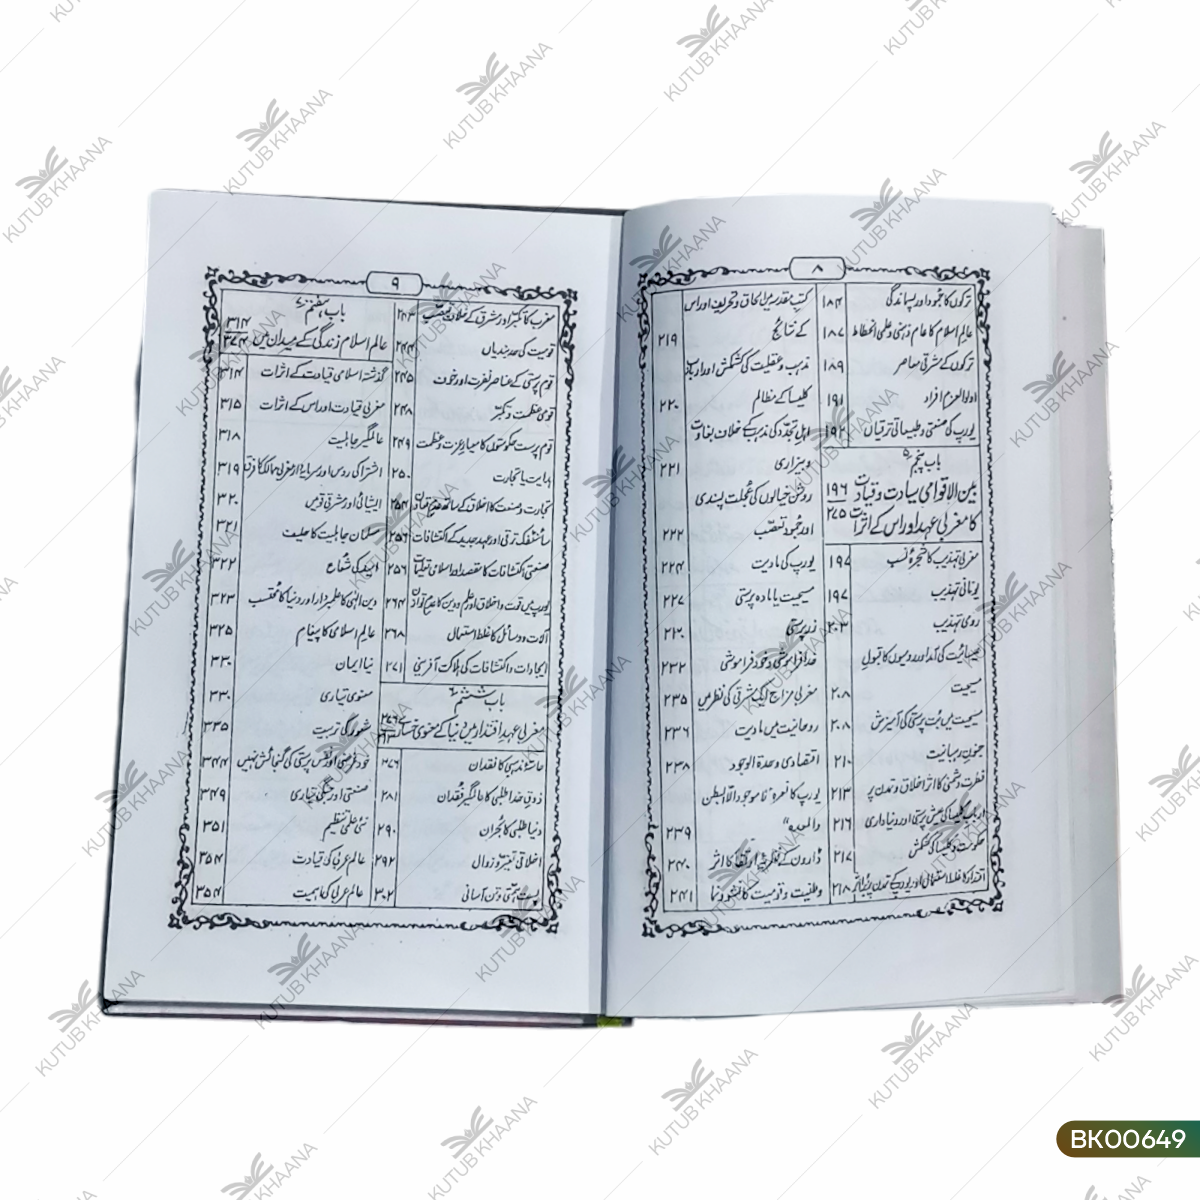 ۸
ترکوں کا جمود اور پسماندگی ۱۸۴
عالم اسلام کا عام ذہنی و علمی انحطاط ۱۸۷
ترکوں کے مشرقی معاصر ۱۸۹
اولوالعزم افراد ۱۹۱
یورپ کی صنعتی و طبیعیاتی ترقیاں ۱۹۲
باب پنجم
بین الاقوامی سیادت و قیادت ۱۹۶
کا مغربی عہد اور اس کے اثرات ۲۷۵
مغربی تہذیب کا شجرۂ نسب ۱۹۷
یونانی تہذیب ۱۹۷
رومی تہذیب ۲۰۳
عیسائیت کی آمد اور رومیوں کا قبول
مسیحیت ۲۰۸
مسیحیت میں بت پرستی کی آمیزش ۲۰۸
جنونِ رہبانیت ۲۱۰
فطرت دشمنی کا اثر اخلاق و تمدن پر ۲۱۳
ارباب کلیسا کی عیش پرستی اور دنیاداری ۲۱۶
حکومت و کلیسا کی کشمکش ۲۱۷
اقتدار کا غلط استعمال اور یورپ کے تمدن پر اثر ۲۱۸
کتب مقدسہ میں الحاق و تحریف اور اس
کے نتائج ۲۱۹
مذہب و عقلیت کی کشمکش اور ارباب
کلیسا کے مظالم ۲۲۰
اہل تجدد کی مذہب کے خلاف بغاوت
و بیزاری ۲۲۱
روشن خیالوں کی عجلت پسندی
اور جمود و تعصب ۲۲۲
یورپ کی مادیت ۲۲۴
مسیحیت یا مادہ پرستی ۲۲۷
زر پرستی ۲۳۰
خدا فراموشی و خود فراموشی ۲۳۲
مغربی مزاج ایک مشرقی کی نظر میں ۲۳۵
روحانیت میں مادیت ۲۳۶
اقتصادی وحدۃ الوجود ۲۳۸
یورپ کا نعرہ "لا موجود الا البطن
والمعدہ" ۲۳۹
ڈارون کے نظریہ ارتقا کا اثر ۲۴۰
وطنیت و قومیت کا نشو و نما ۲۴۱
۹
مغرب کا تکبر اور مشرق کے خلاف تعصب ۲۴۳
قومیت کی حد بندیاں ۲۴۴
قوم پرستی کے عناصر نفرت اور خوف ۲۴۵
قومی عظمت و تکبر ۲۴۸
قوم پرست حکومتوں کا معیار عزت و عظمت ۲۴۹
ہدایت یا تجارت ۲۵۰
تجارت و صنعت کا اخلاق کے ساتھ عدم تعاون ۲۵۴
سائنٹفک ترقی اور عہد جدید کے اکتشافات ۲۵۴
صنعتی اکتشافات کا مقصد اور اسلامی تعلیمات ۲۵۶
یورپ میں قوت و اخلاق اور علم و دین کا عدم توازن ۲۶۴
آلات و وسائل کا غلط استعمال ۲۶۸
ایجادات و اکتشافات کی ہلاکت آفرینی ۲۷۱
باب ششم
مغربی عہد اقتدار میں دنیا کے معنوی خسارے ۲۷۶
حاسۂ مذہبی کا فقدان ۲۷۶
ذوقِ خدا طلبی کا عالمگیر فقدان ۲۸۱
دنیا طلبی کا بحران ۲۹۰
اخلاقی تغیر و زوال ۲۹۲
پست ہمتی و تن آسانی ۳۰۲
باب ہفتم
عالم اسلام زندگی کے میدان میں ۳۱۴
۳۷۴
گذشتہ اسلامی قیادت کے اثرات ۳۱۴
مغربی قیادت اور اس کے اثرات ۳۱۵
عالمگیر جاہلیت ۳۱۸
اشتراکی روس اور سرمایہ دار مغربی ممالک کا فرق ۳۱۹
ایشیائی اور مشرقی قومیں ۳۲۰
مسلمان جاہلیت کا حلیف ۳۲۱
امید کی شعاع ۳۲۲
دین الٰہی کا علمبردار اور دنیا کا محتسب ۳۲۳
عالم اسلامی کا پیغام ۳۲۵
نیا ایمان ۳۳۰
معنوی تیاری ۳۳۰
شعور کی تربیت ۳۳۵
خود غرضی اور نفس پرستی کی گنجائش نہیں ۳۴۴
صنعتی اور جنگی تیاری ۳۴۹
نئی علمی تنظیم ۳۵۱
عالم عربی کی قیادت ۳۵۴
عالم عربی کی اہمیت ۳۵۴
KUTUB KHAANA
BK00649